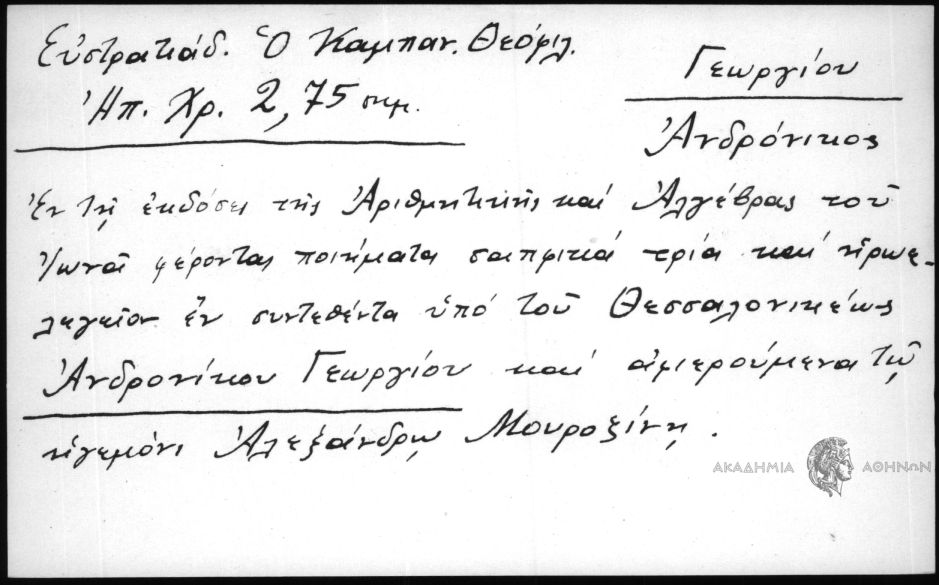 Εὐστρατιάδ. Ὁ Καμπαν. Θεόφιλ.
Ἠπ. Χρ. 2, 75 σημ.
Γεωργίου
Ἀνδρόνικος
Ἐν τῇ ἐκδόσει τῆς Ἀριθμητικῆς καὶ Ἀλγέβρας τοῦ
φέρονται ποιήματα σαπφικά τρία καὶ ἡρωε-
λεγεῖον ἕν συντεθέντα ὑπό τοῦ Θεσσαλονικέως
Ἀνδρονίκου Γεωργίου καὶ ἀφιερούμενα τῷ
ἡγεμόνι Ἀλεξάνδρῳ Μουροζίνῃ.
ΑΚΑΔΗΜΙΑ ΑΘΗΝΩΝ